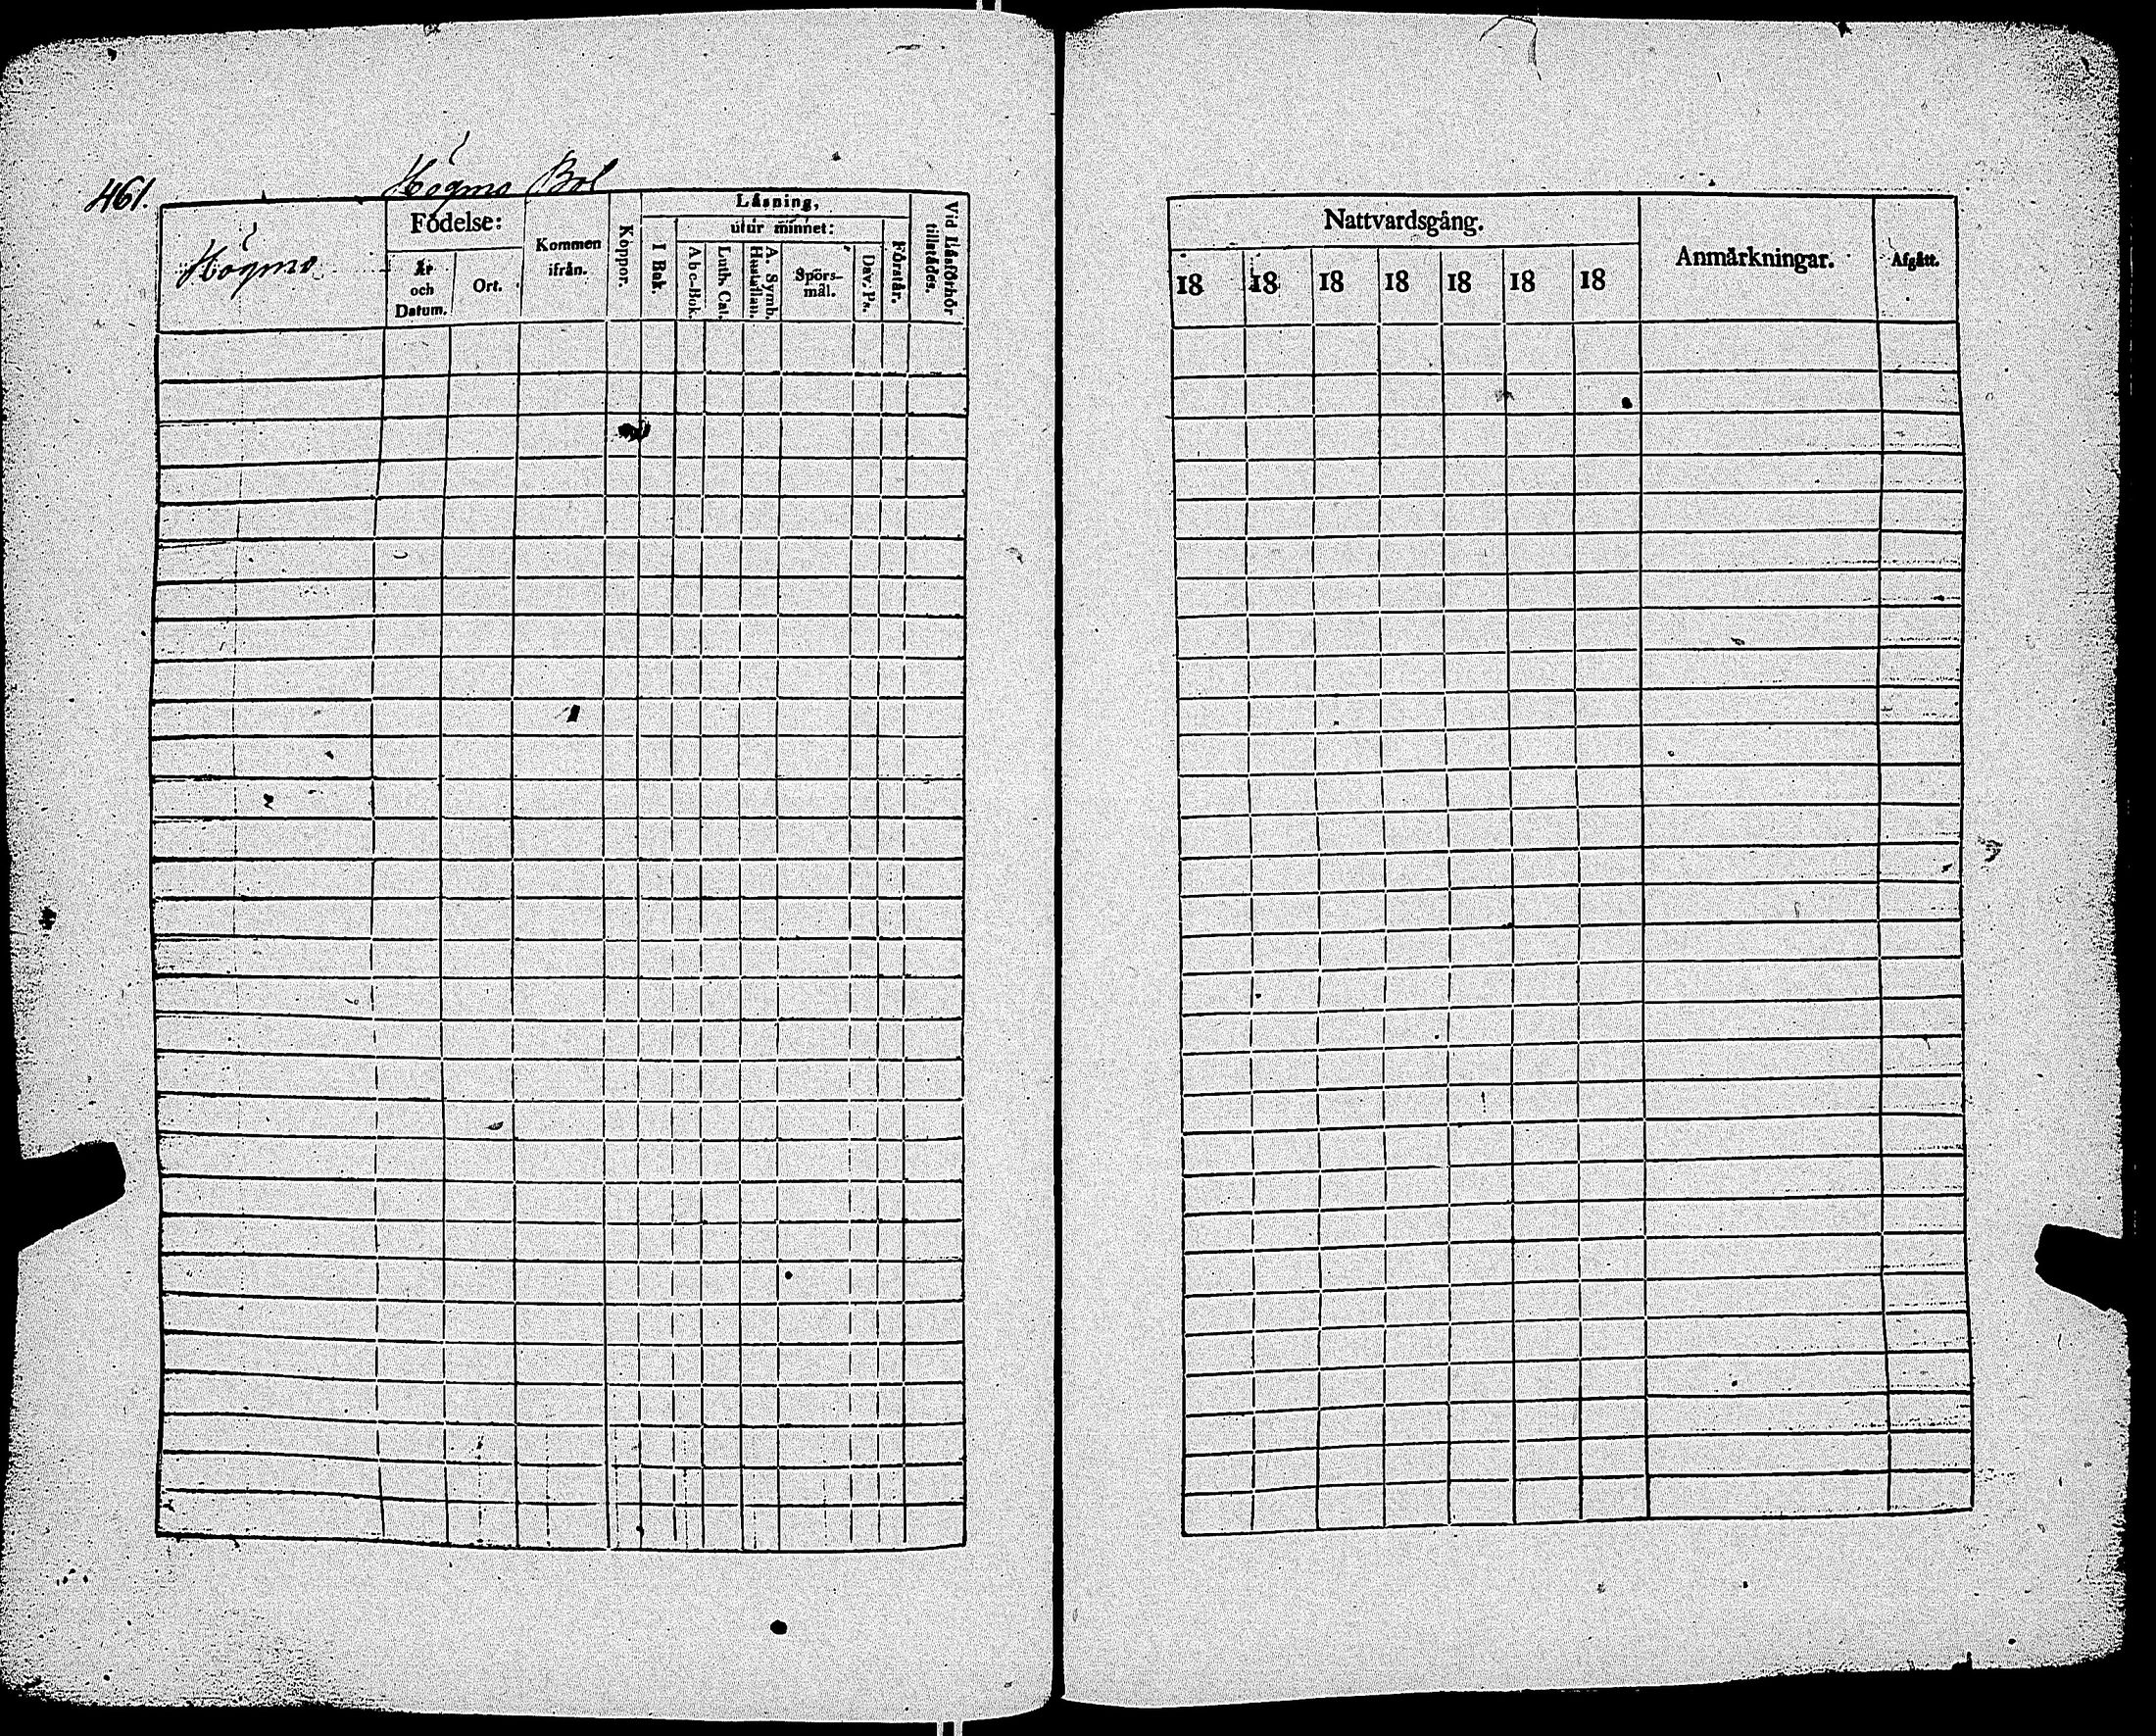 461.
Högmo Bol
Högmo
Födelse:
År och Datum.
Ort.
Kommen ifrån.
Koppor.
Läsning,
I Bok.
utur minnet:
Abc-Bok.
Luth. Cat.
A. Symb. Hustaflan.
Spörs-
mål.
Dav. Ps.
Förstår.
Vid Läsförhör tillstädes.
Nattvardsgång.
18 18 18 18 18 18 18
Anmärkningar.
Afgått.